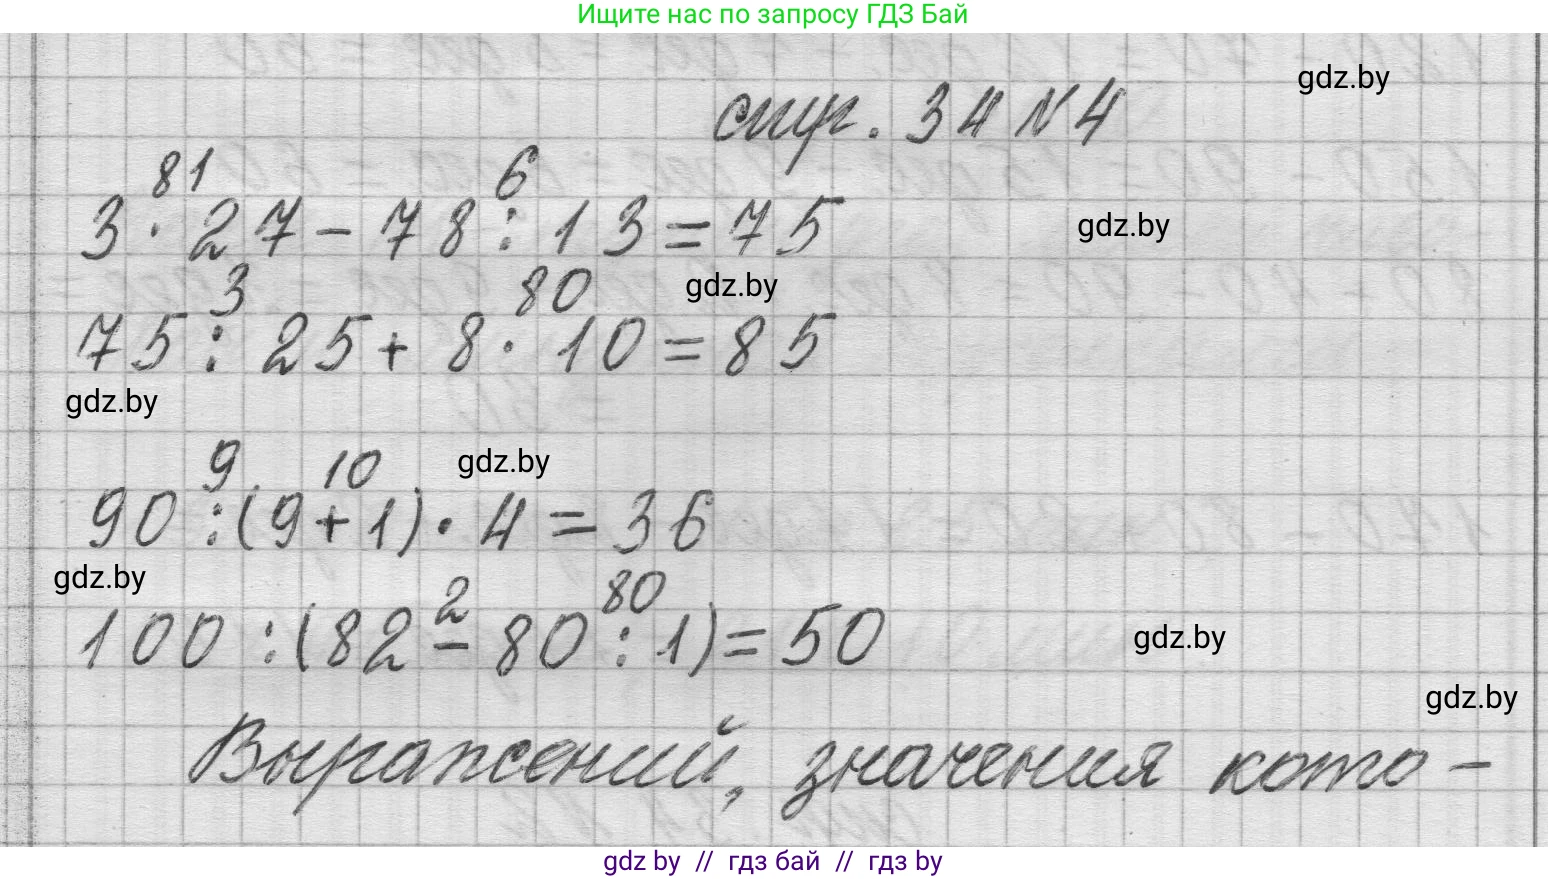 Ищите нас по запросу ГДЗ Бай
gdz.by
стр. 34 № 4
81 6
3 · 27 - 78 : 13 = 75
gdz.by
3 80
gdz.by
75 : 25 + 8 · 10 = 85
gdz.by
9 10
gdz.by
90 : (9 + 1) · 4 = 36
gdz.by
2 80
100 : (82 - 80 : 1) = 50
gdz.by
gdz.by
Выражений, значения кото-
gdz by // гдз бай // гдз by